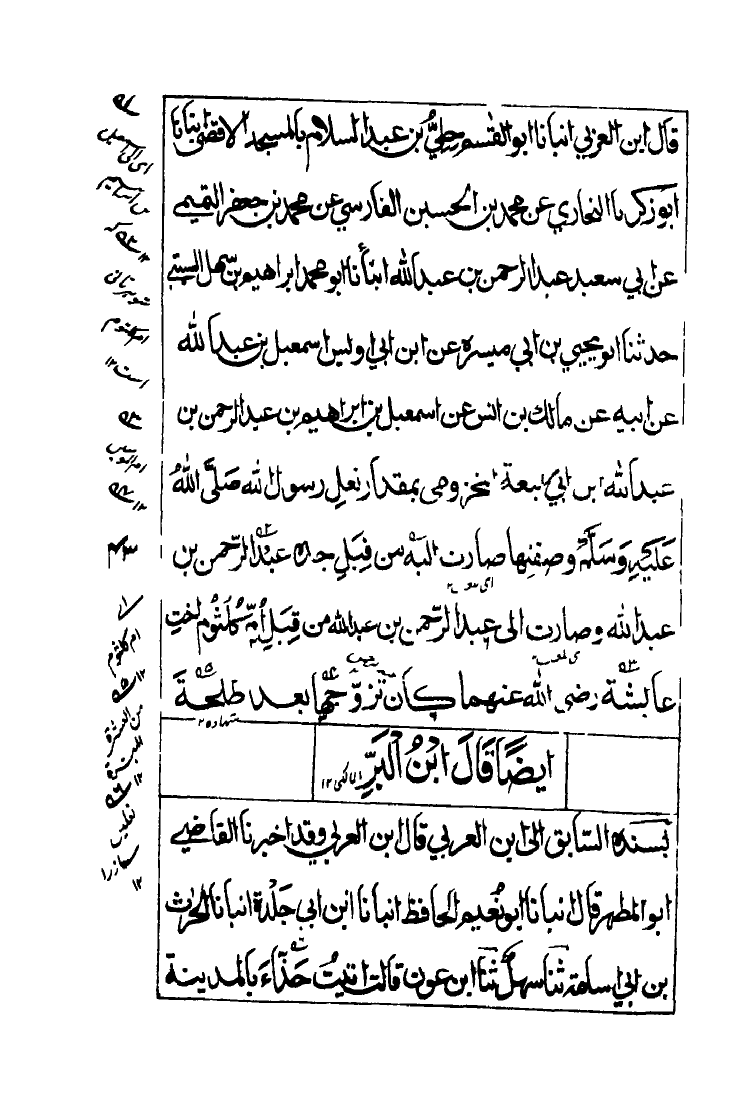 قال ابن العزبي انبانا ابو القسم حطيُّ بن عبد السلام بالمسجد الاقصٰى انبانا
ابو زكريا النجاري عن محمد بن الحسين الفارسي عن محمد بن جعفر التميمي
عن ابي سعيد عبد الرحمن بن عبد الله انبأنا ابو محمد ابراهيم بن سهل السبتي
حدثنا ابو يحيى بن ابي ميسرة عن ابن ابي اوليس اسمعيل بن عبد الله
عن ابيه عن مالك بن انس عن اسمعيل بن ابراهيم بن عبد الرحمن بن
عبد الله ابن ابي ربيعة المخزومي بمقدار نعل رسول الله صَلَّى اللهُ
عَلَيْهِ وَسَلَّمَ وصفتها صارت اليه من قِبَلِ جده عبد الرّحمن بن
عبد الله وصارت الى عبد الرّحمن بن عبد الله من قِبَل اُمّه كُلْثُوم اُخت
عايشة رضي الله عنهما كان تزوّجها بعد طلحة
ايضًا قَالَ ابْنُ الْبَرِّ المالكي ١٢
بسنده السّابق الى ابن العربي قال ابن العربي وقد اخبرنا القاضي
ابو المطهر قال انبانا ابو نُعيم الحافظ انبانا ابن ابي خلدة انبانا الحرث
بن ابي اسامة ثنا سهلٌ ثنا ابن عون قالت اتيتُ حَذّاءَ بالمدينة
اى الى اسمعيل
بن ابراهيم
شوهر ثانى
ام كلثوم
است ١٢
ام كلثوم
من العشرة
المبشرة
١٢